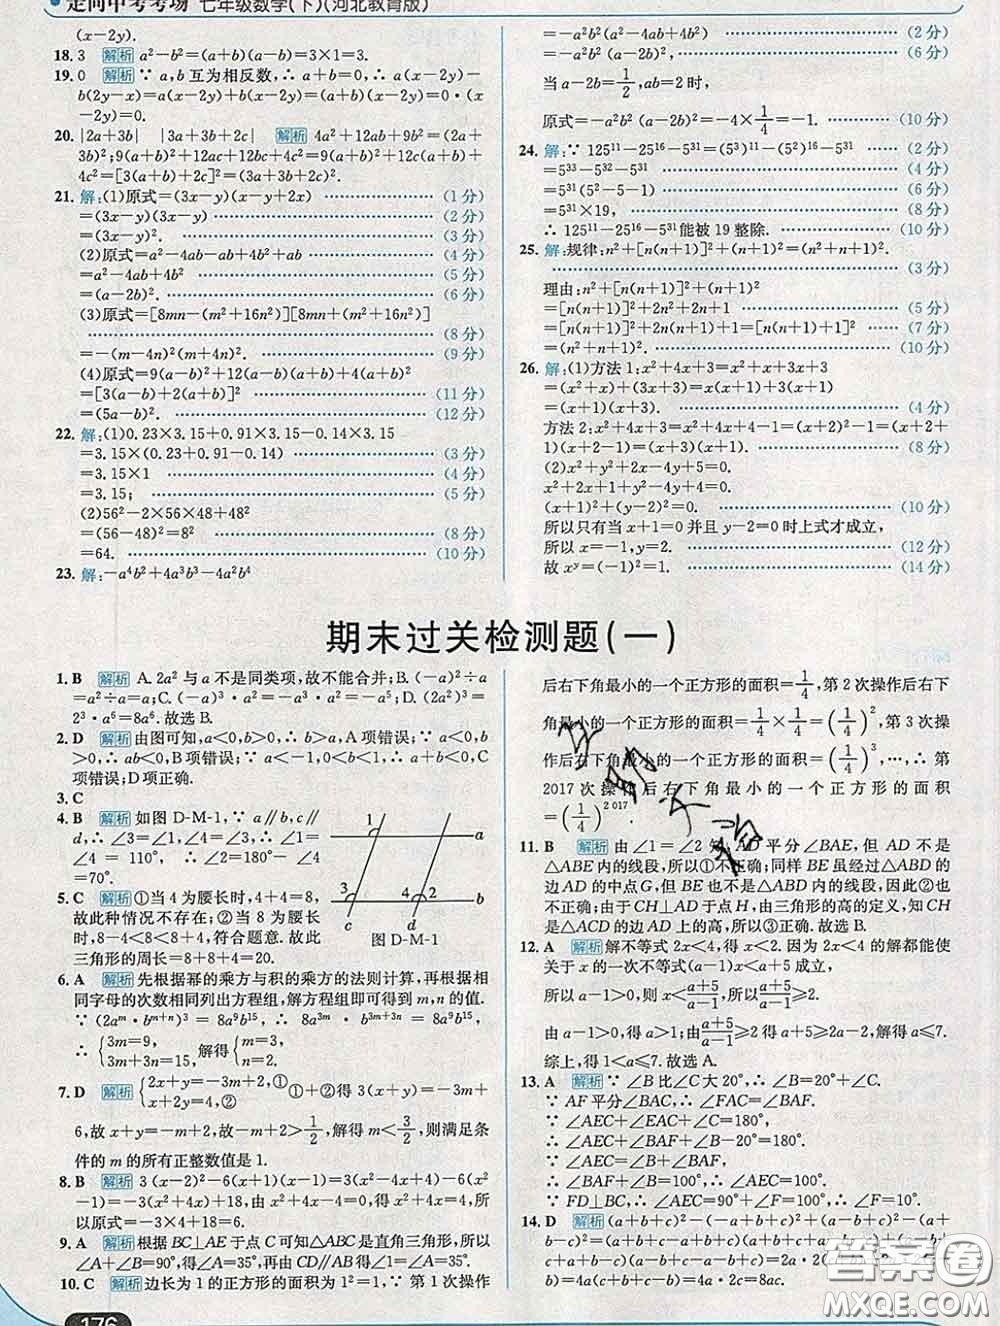 走向中考考场 七年级数学(下)(河北教育版)
(x-2y).
18.3 解析 a²-b²=(a+b)(a-b)=3×1=3.
19.0 解析 ∵ a,b互为相反数,∴ a+b=0,∴ a(x-2y)-
b(2y-x)=a(x-2y)+b(x-2y)=(a+b)(x-2y)=0·(x
-2y)=0.
20.|2a+3b| |3a+3b+2c| 解析 4a²+12ab+9b²=(2a+
3b)²;9(a+b)²+12ac+12bc+4c²=9(a+b)²+12c(a+b)+
4c²=[3(a+b)+2c]²=(3a+3b+2c)².
21.解:(1)原式=(3x-y)(x-y+2x) (1分)
=(3x-y)(3x-y) (2分)
=(3x-y)². (3分)
(2)原式=a²-4ab-ab+4b²+ab (4分)
=a²-4ab+4b² (5分)
=(a-2b)². (6分)
(3)原式=[8mn-(m²+16n²)][8mn+(m²+16n²)]
(8分)
=-(m-4n)²(m+4n)². (9分)
(4)原式=9(a-b)²+12(a-b)(a+b)+4(a+b)²
=[3(a-b)+2(a+b)]² (11分)
=(5a-b)². (12分)
22.解:(1)0.23×3.15+0.91×3.15-0.14×3.15
=3.15×(0.23+0.91-0.14) (3分)
=3.15×1 (4分)
=3.15; (5分)
(2)56²-2×56×48+48²
=(56-48)²=8² (8分)
=64. (10分)
23.解:-a⁴b²+4a³b³-4a²b⁴
=-a²b²(a²-4ab+4b²) (2分)
=-a²b²(a-2b)². (6分)
当a-2b=1/2,ab=2时,
原式=-a²b²(a-2b)²=-4×1/4=-1. (10分)
24.解:∵ 125¹¹-25¹⁶-5³¹=(5³)¹¹-(5²)¹⁶-5³¹ (2分)
=5³³-5³²-5³¹ (4分)
=5³¹(5²-5-1) (6分)
=5³¹×19, (8分)
∴ 125¹¹-25¹⁶-5³¹能被19整除. (10分)
25.解:规律:n²+[n(n+1)]²+(n+1)²=(n²+n+1)².
(3分)
理由:n²+[n(n+1)]²+(n+1)²
=[n(n+1)]²+2n²+2n+1 (5分)
=[n(n+1)]²+2n(n+1)+1=[n(n+1)+1]² (7分)
=(n²+n+1)². (10分)
26.解:(1)方法1:x²+4x+3=x²+x+3x+3
=(x²+x)+(3x+3)=x(x+1)+3(x+1)
=(x+1)(x+3). (4分)
方法2:x²+4x+3=x²+4x+4-1=(x+2)²-1=(x+2+
1)(x+2-1)=(x+3)(x+1). (8分)
(2)x²+y²+2x-4y+5=0.
x²+2x+1+y²-4y+4=0.
(x+1)²+(y-2)²=0. (10分)
所以只有当x+1=0并且y-2=0时上式才成立,
所以x=-1,y=2. (12分)
故xʸ=(-1)²=1. (14分)
期末过关检测题(一)
1.B 解析 A.2a²与a不是同类项,故不能合并;B.(-a)²÷a
=a²÷a=a;C.(-a)³·a²=-a³·a²=-a⁵;D.(2a²)³=
2³·a⁶=8a⁶.故选B.
2.D 解析 由图可知,a<0,b>0,∴ b>a,A项错误;∵ a<0,b
>0,∴ ab<0,B项错误;∵ a<-1,0<b<1,∴ a+b<0,C
项错误;D项正确.
3.C
4.B 解析 如图D-M-1,∵ a∥b,c∥
d,∴ ∠3=∠1,∠4=∠3,∴ ∠1=
∠4=110°,∴ ∠2=180°-∠4
=70°.
1 a
3 4 2 b
图D-M-1
5.C 解析 ①当4为腰长时,4+4=8,
故此种情况不存在;②当8为腰长
时,8-4<8<8+4,符合题意.故此
三角形的周长=8+8+4=20.
6.A 解析 先根据幂的乘方与积的乘方的法则计算,再根据相
同字母的次数相同列出方程组,解方程组即可得到m,n的值.
∵ (2aᵐ·bᵐ⁺ⁿ)³=8a⁹b¹⁵,∴ 8a³ᵐ·b³ᵐ⁺³ⁿ=8a⁹b¹⁵,
∴ {3m=9, 3m+3n=15, 解得{m=3, n=2.
7.D 解析 {2x+y=-3m+2,① x+2y=4,② ①+②得3(x+y)=-3m+
6,故x+y=-m+2,故-m+2>1/2,解得m<3/2,则满足条
件的m的所有正整数值是1.
8.B 解析 3(x-2)²-6(x+1)(x-1)=3(x²-4x+4)-6(x²
-1)=-3(x²+4x)+18,由x²+4x-4=0,得x²+4x=4,所
以原式=-3×4+18=6.
9.A 解析 根据BC⊥AE于点C可知△ABC是直角三角形,所以
∠A+∠B=90°,得∠A=35°,再由CD∥AB得∠1=∠A=35°.
10.C 解析 边长为1的正方形的面积为1²=1,∵ 第1次操作
后右下角最小的一个正方形的面积=1/4,第2次操作后右下
角最小的一个正方形的面积=1/4×1/4=(1/4)²,第3次操
作后右下角最小的一个正方形的面积=(1/4)³,…,∴ 第
2017次操作后右下角最小的一个正方形的面积
=(1/4)²⁰¹⁷.
11.B 解析 由∠1=∠2知,AD平分∠BAE,但AD不是
△ABE内的线段,所以①不正确;同样BE虽经过△ABD的
边AD的中点G,但BE也不是△ABD内的线段,因此②也
不正确;由于CH⊥AD于点H,由三角形的高的定义,知CH
是△ACD的边AD上的高,所以③正确.故选B.
12.A 解析 解不等式2x<4,得x<2.因为2x<4的解都能使
关于x的一次不等式(a-1)x<a+5成立,
所以a-1>0,则x<(a+5)/(a-1),所以(a+5)/(a-1)≥2.
由a-1>0,得a>1;由(a+5)/(a-1)≥2得a+5≥2a-2,解得a≤7.
综上,得1<a≤7.故选A.
13.A 解析 ∵ ∠B比∠C大20°,∴ ∠B=∠C+20°.
∵ AF平分∠BAC,∴ ∠FAC=∠BAF.
∵ ∠AEC+∠FAC+∠C=180°,
∴ ∠AEC+∠BAF+∠B-20°=180°,
∴ ∠AEC=∠B+∠BAF,
∴ ∠B+∠BAF=100°,∴ ∠AEC=100°.
∵ FD⊥BC,∴ ∠AEC=90°+∠F,∴ ∠F=10°.
14.D 解析 (a+b+c)²-(-a+b+c)²+(a-b+c)²-(a+b-
b)=4a(b+c)+4a(c-b)=4a·2c=8ac.
176
答案圈
MXQE.COM